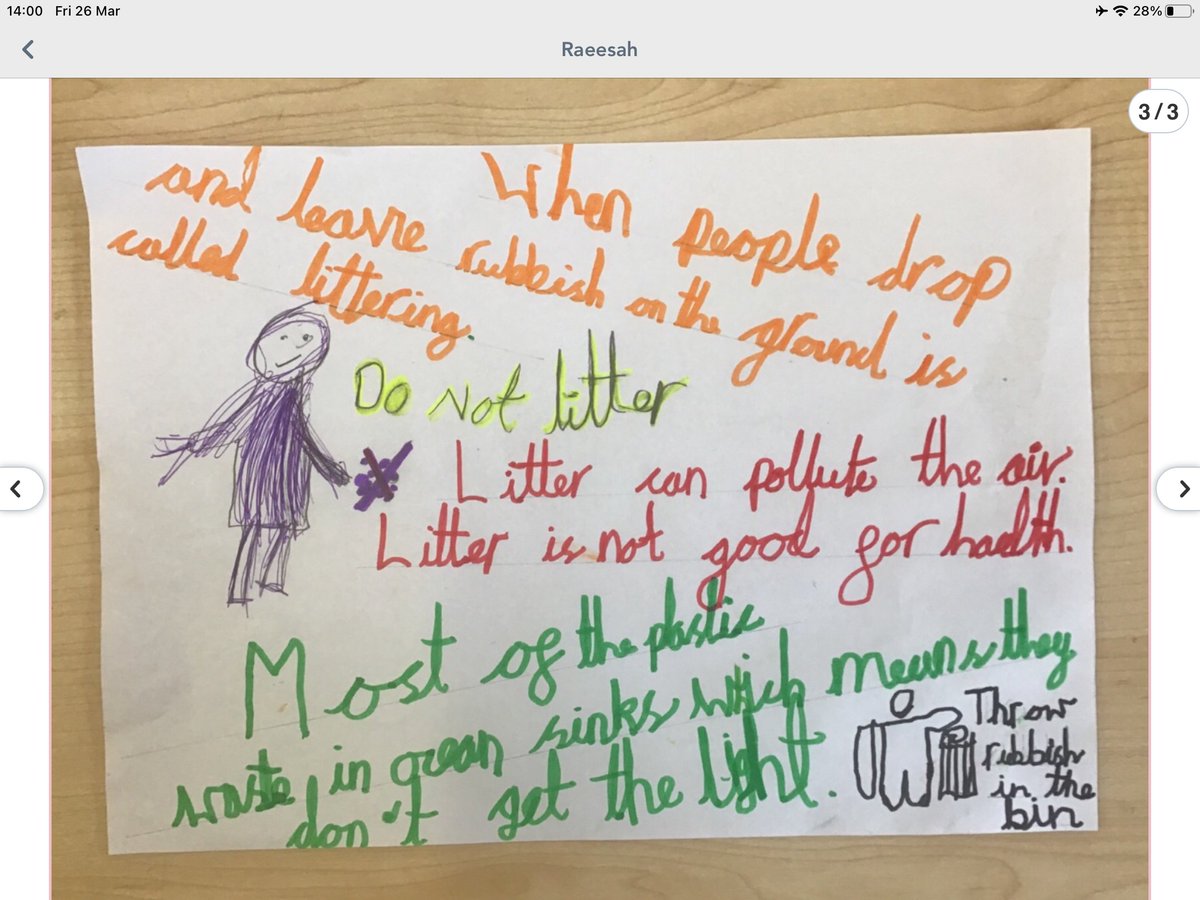 14:00 Fri 26 Mar
28%
Raeesah
3/3
When people drop
and leave rubbish on the ground is
called littering.
Do Not litter
Litter can pollute the air.
Litter is not good for haelth.
Most of the plastic
waste in ocean sinks which means they
don't get the light.
Throw
rubbish
in the
bin